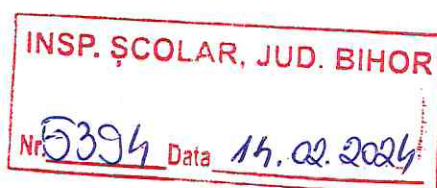 INSP. ȘCOLAR, JUD. BIHOR
Nr 5394 Data 14.02.2024